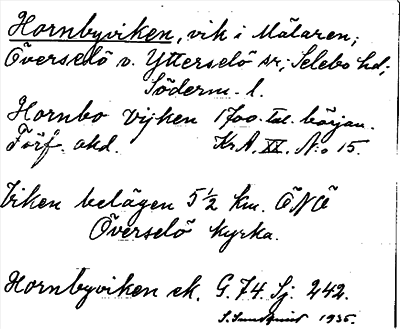 Hornbyviken, vik i Mälaren;
Överselö o. Ytterselö sr; Selebo hd;
Söderm. l.
Hornbo Vijken 1700-tal. början.
Förf. okd. KrA. XX. N:o 15.
Viken belägen 5 1/2 km. ÖNÖ
Överselö kyrka.
Hornbyviken ek. G. 74. Sj. 242.
S. Sundqvist 1935.